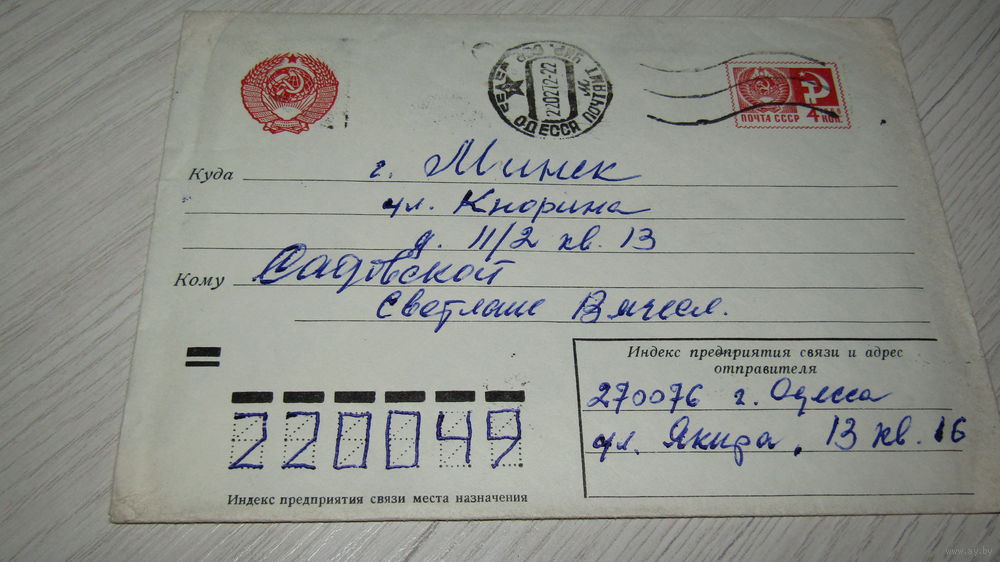 УКР. ССР
ОДЕССА ПОЧТАМТ
220272-22
ПОЧТА СССР
4 КОП.
Куда г. Минск
ул. Кнорина
д. 11/2 кв. 13
Кому Садовской
Светлане Вячесл.
Индекс предприятия связи и адрес
отправителя
270076 г. Одесса
ул. Якира, 13 кв. 16
220049
Индекс предприятия связи места назначения
www.ay.by